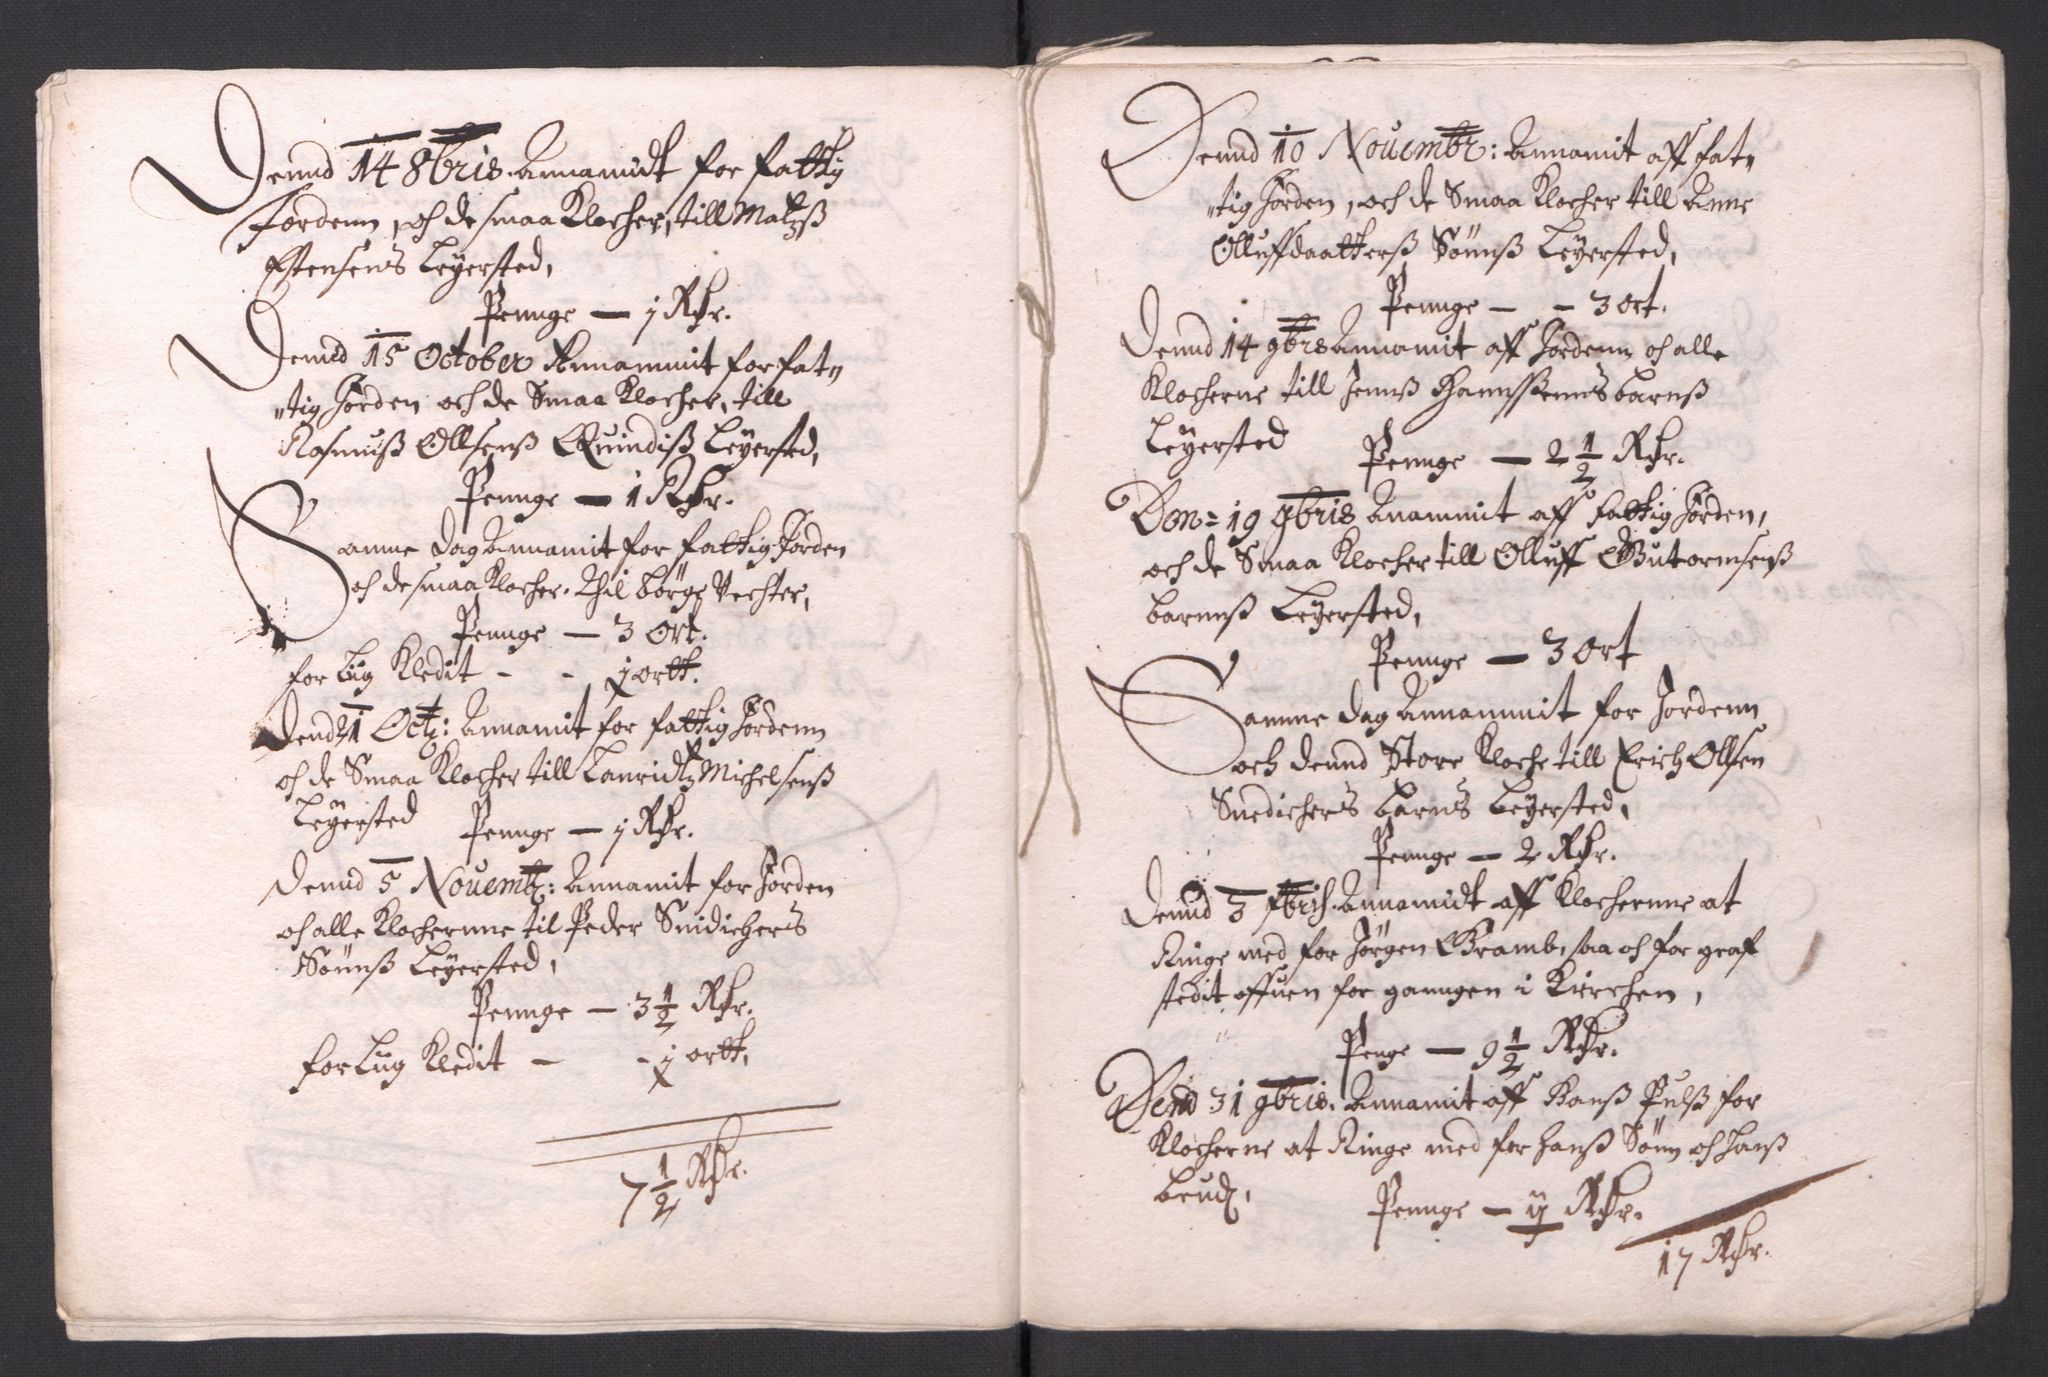 Dennd 14 8bris. Annamidt for fattig
Jordenn, och de smaa Klocher, till Matzß
Estensens Leyersted,
Pennge — j Rdr.
Dennd 15 October Annammit for fat„
„tig Jorden och de Smaa Klocher, till
Rasmuß Ollsenß Quindiß Leyersted,
Pennge — 1 Rdr.
Samme dag Annamit for fattig Jorden
och de smaa Klocher. Thil Börge Vechter,
Pennge — 3 Ort.
for Lig Kledit - - j ortt.
Dend 21 Octb: Annamit for fattig Jordenn
och de Smaa Klocher till Lauridtz Michelsenß
Leyersted Pennge — j Rdr.
Dennd 5 Novemb: Annamit for Jorden
och alle Klocherne til Peder Snidichers
Sönnß Leyersted,
Pennge — 3 1/2 Rdr.
for Lug Kledit — - j ortt.
7 1/2 Rdr.
Dennd 10 Nouembr: Annamit aff fat„
„tig Jorden, och de Smaa Klocher till Anne
Olluffdaatterß Sönnß Leyersted,
Pennge — - 3 ort.
Dennd 14 9bris Annamit aff Jordenn och alle
Klocherne till Jennß Hannsßenns barnß
Leyersted Pennge — 2 1/2 Rdr.
Den = 19 9bris Anammit aff fattig Jorden,
och de Smaa Klocher till Olluff Gutormsenß
barnnß Leyersted,
Pennge — 3 Ort
Samme dag Annammit for Jordenn
och dennd Store Kloche till Erich Ollsen
Snedichers barns Leyersted,
Pennge — 2 Rdr.
Dennd 3 Annamidt aff Klochernne at
Ringe med for Jörgen Bramb, saa och for graf
stedit offuen for ganngen i Kirchen,
Penge — 9 1/2 Rdr.
Dend 31 9bris. Annamit aff Hanß Pulß for
Klocherne at Ringe med for hanß Sönn och Hanß
Pennge — ij Rdr.
17 Rdr.